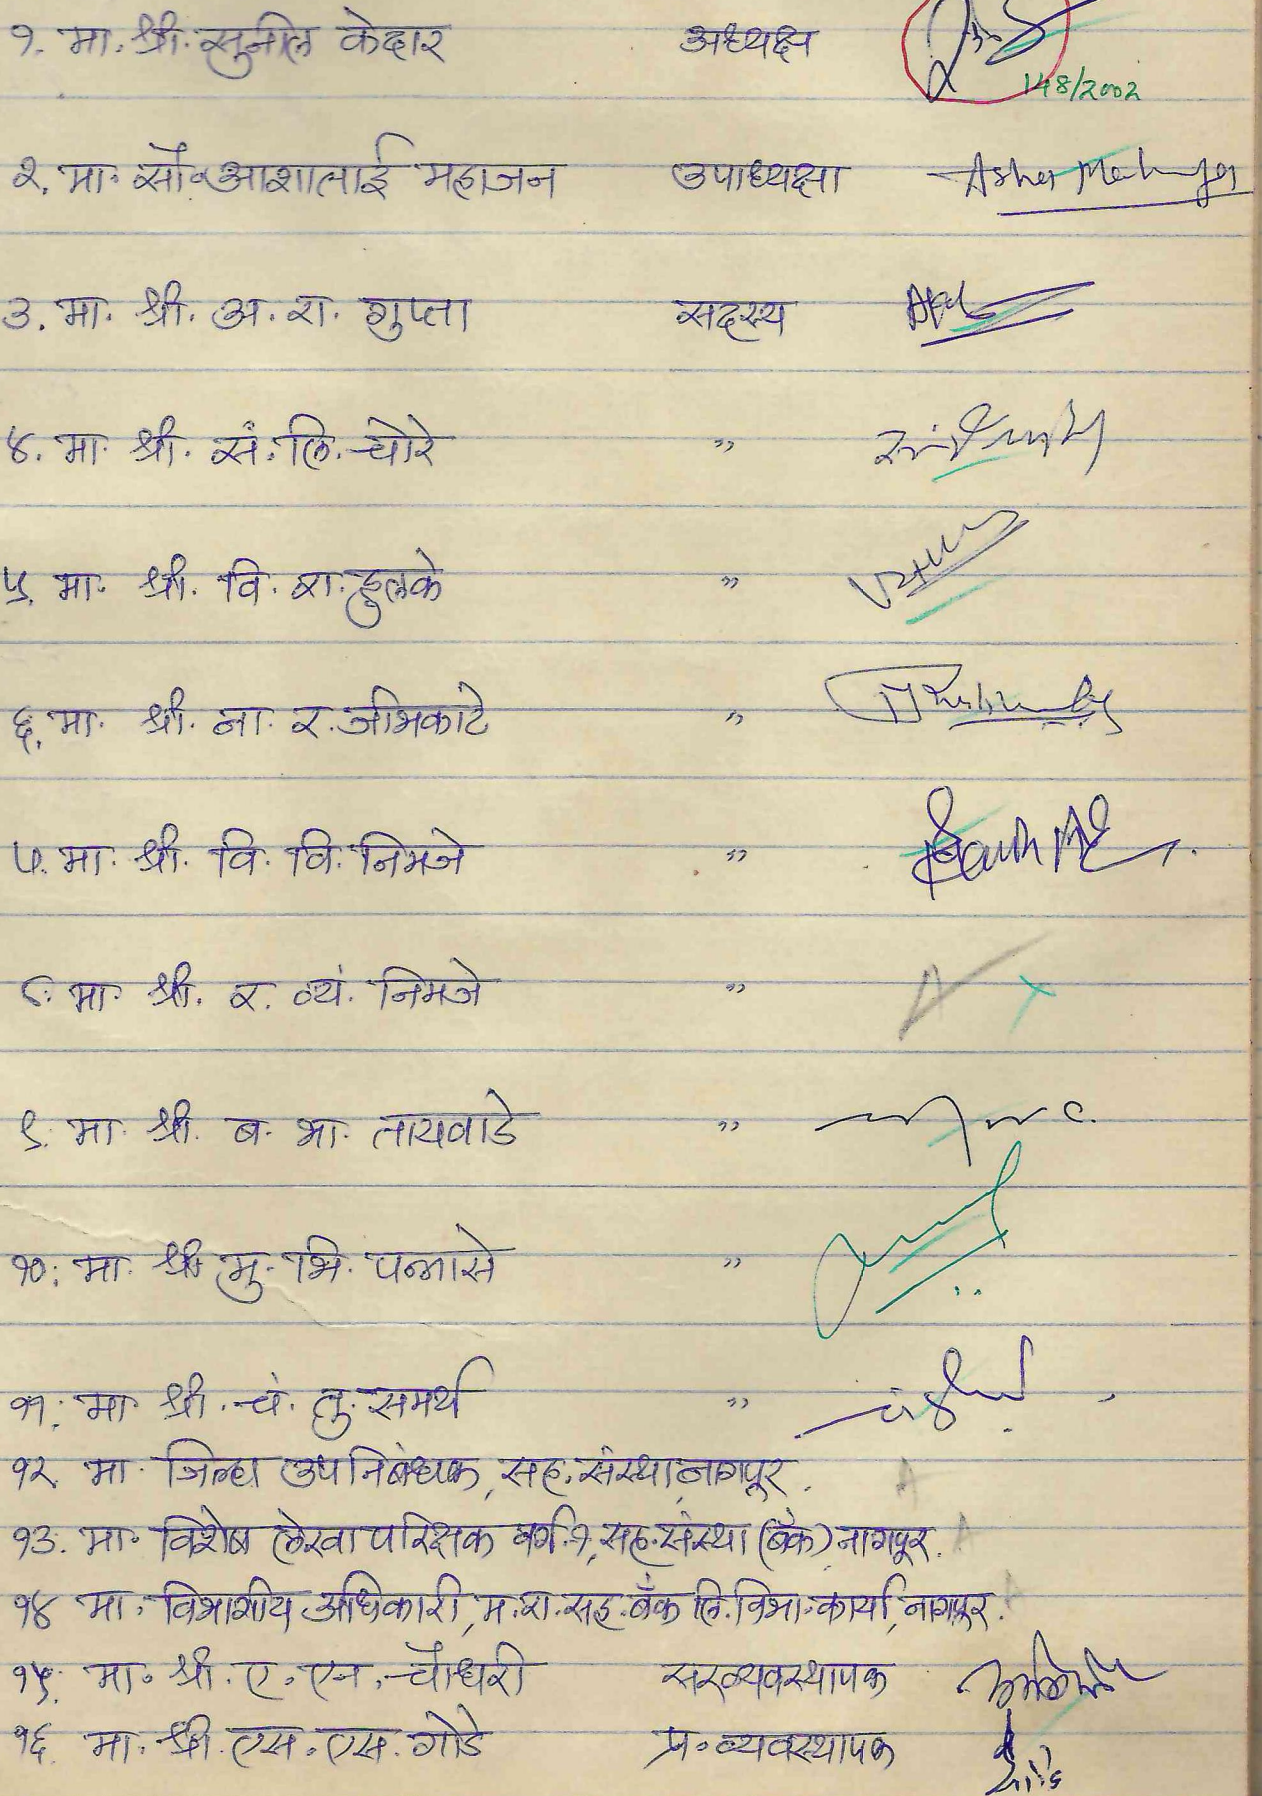 १. मा. श्री. सुनील केदार अध्यक्ष
14/8/2002
२. मा. सौ. आशाताई महाजन उपाध्यक्षा Asha Mahajan
३. मा. श्री. अ. रा. गुप्ता सदस्य
४. मा. श्री. सं. लि. चोरे "
५. मा. श्री. वि. रा. हुलके "
६. मा. श्री. ना. र. जीभकाटे "
७. मा. श्री. वि. वि. निमजे "
८. मा. श्री. र. व्यं. निमजे " A
९. मा. श्री. ब. भा. तायवाडे "
१०. मा. श्री. मु. भि. पन्नासे "
११. मा. श्री. चं. तु. समर्थ "
१२. मा. जिल्हा उपनिबंधक, सह. संस्था, नागपूर. A
१३. मा. विशेष लेखा परिक्षक वर्ग-१, सह. संस्था (बँक) नागपूर. A
१४. मा. विभागीय अधिकारी, म. रा. सह. बँक लि. विभा. कार्या, नागपूर. A
१५. मा. श्री. ए. एन. चौधरी सरव्यवस्थापक
१६. मा. श्री. एस. एस. गोडे प्र. व्यवस्थापक